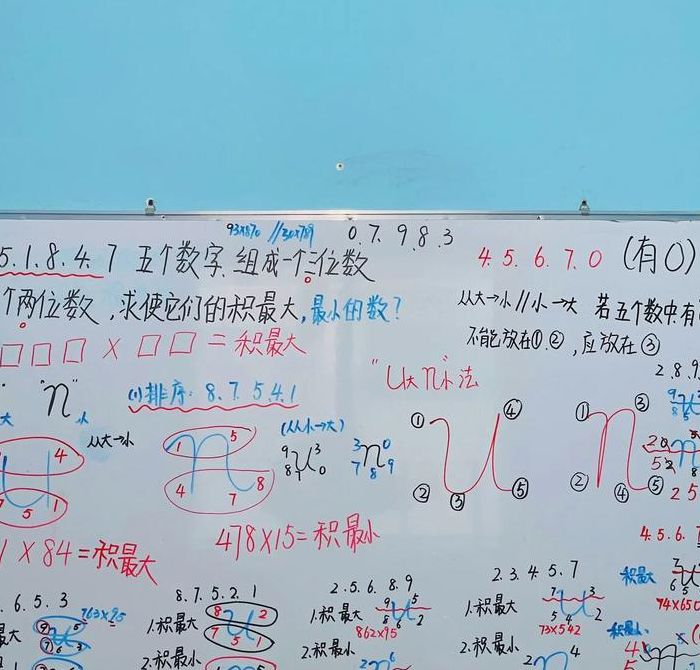 93×870 // 30×789 0.7.9.8.3
5.1.8.4.7 五个数字,组成一个三位数
4.5.6.7.0 (有0)
个两位数,求使它们的积最大,最小的数?
从大→小//小→大 若五个数中有
□□□×□□=积最大
不能放在①.②,应放在③
"U大n小"法
2.8.9
"n"小
(1)排序:8.7.5.4.1
大
从大→小
(从小→大)
4
7 5 1
1 5
4 7 8
9 u 3
8 7 0
3 n 0
7 8 9
① ④
② ③ ⑤
① ③
② ④ ⑤
1×84=积最大
478×15=积最小
4.5.6.
.6.5.3
763×95
8.7.5.2.1
1.积最大
8 u 2
7 5 1
2.积最小
2.5.6.8.9
1.积最大
9 u 5
8 6 2
862×95
2.积最小
2.3.4.5.7
1.积最大
7 u 3
5 4 2
73×542
2.积最小
积最大
74×650
积最小